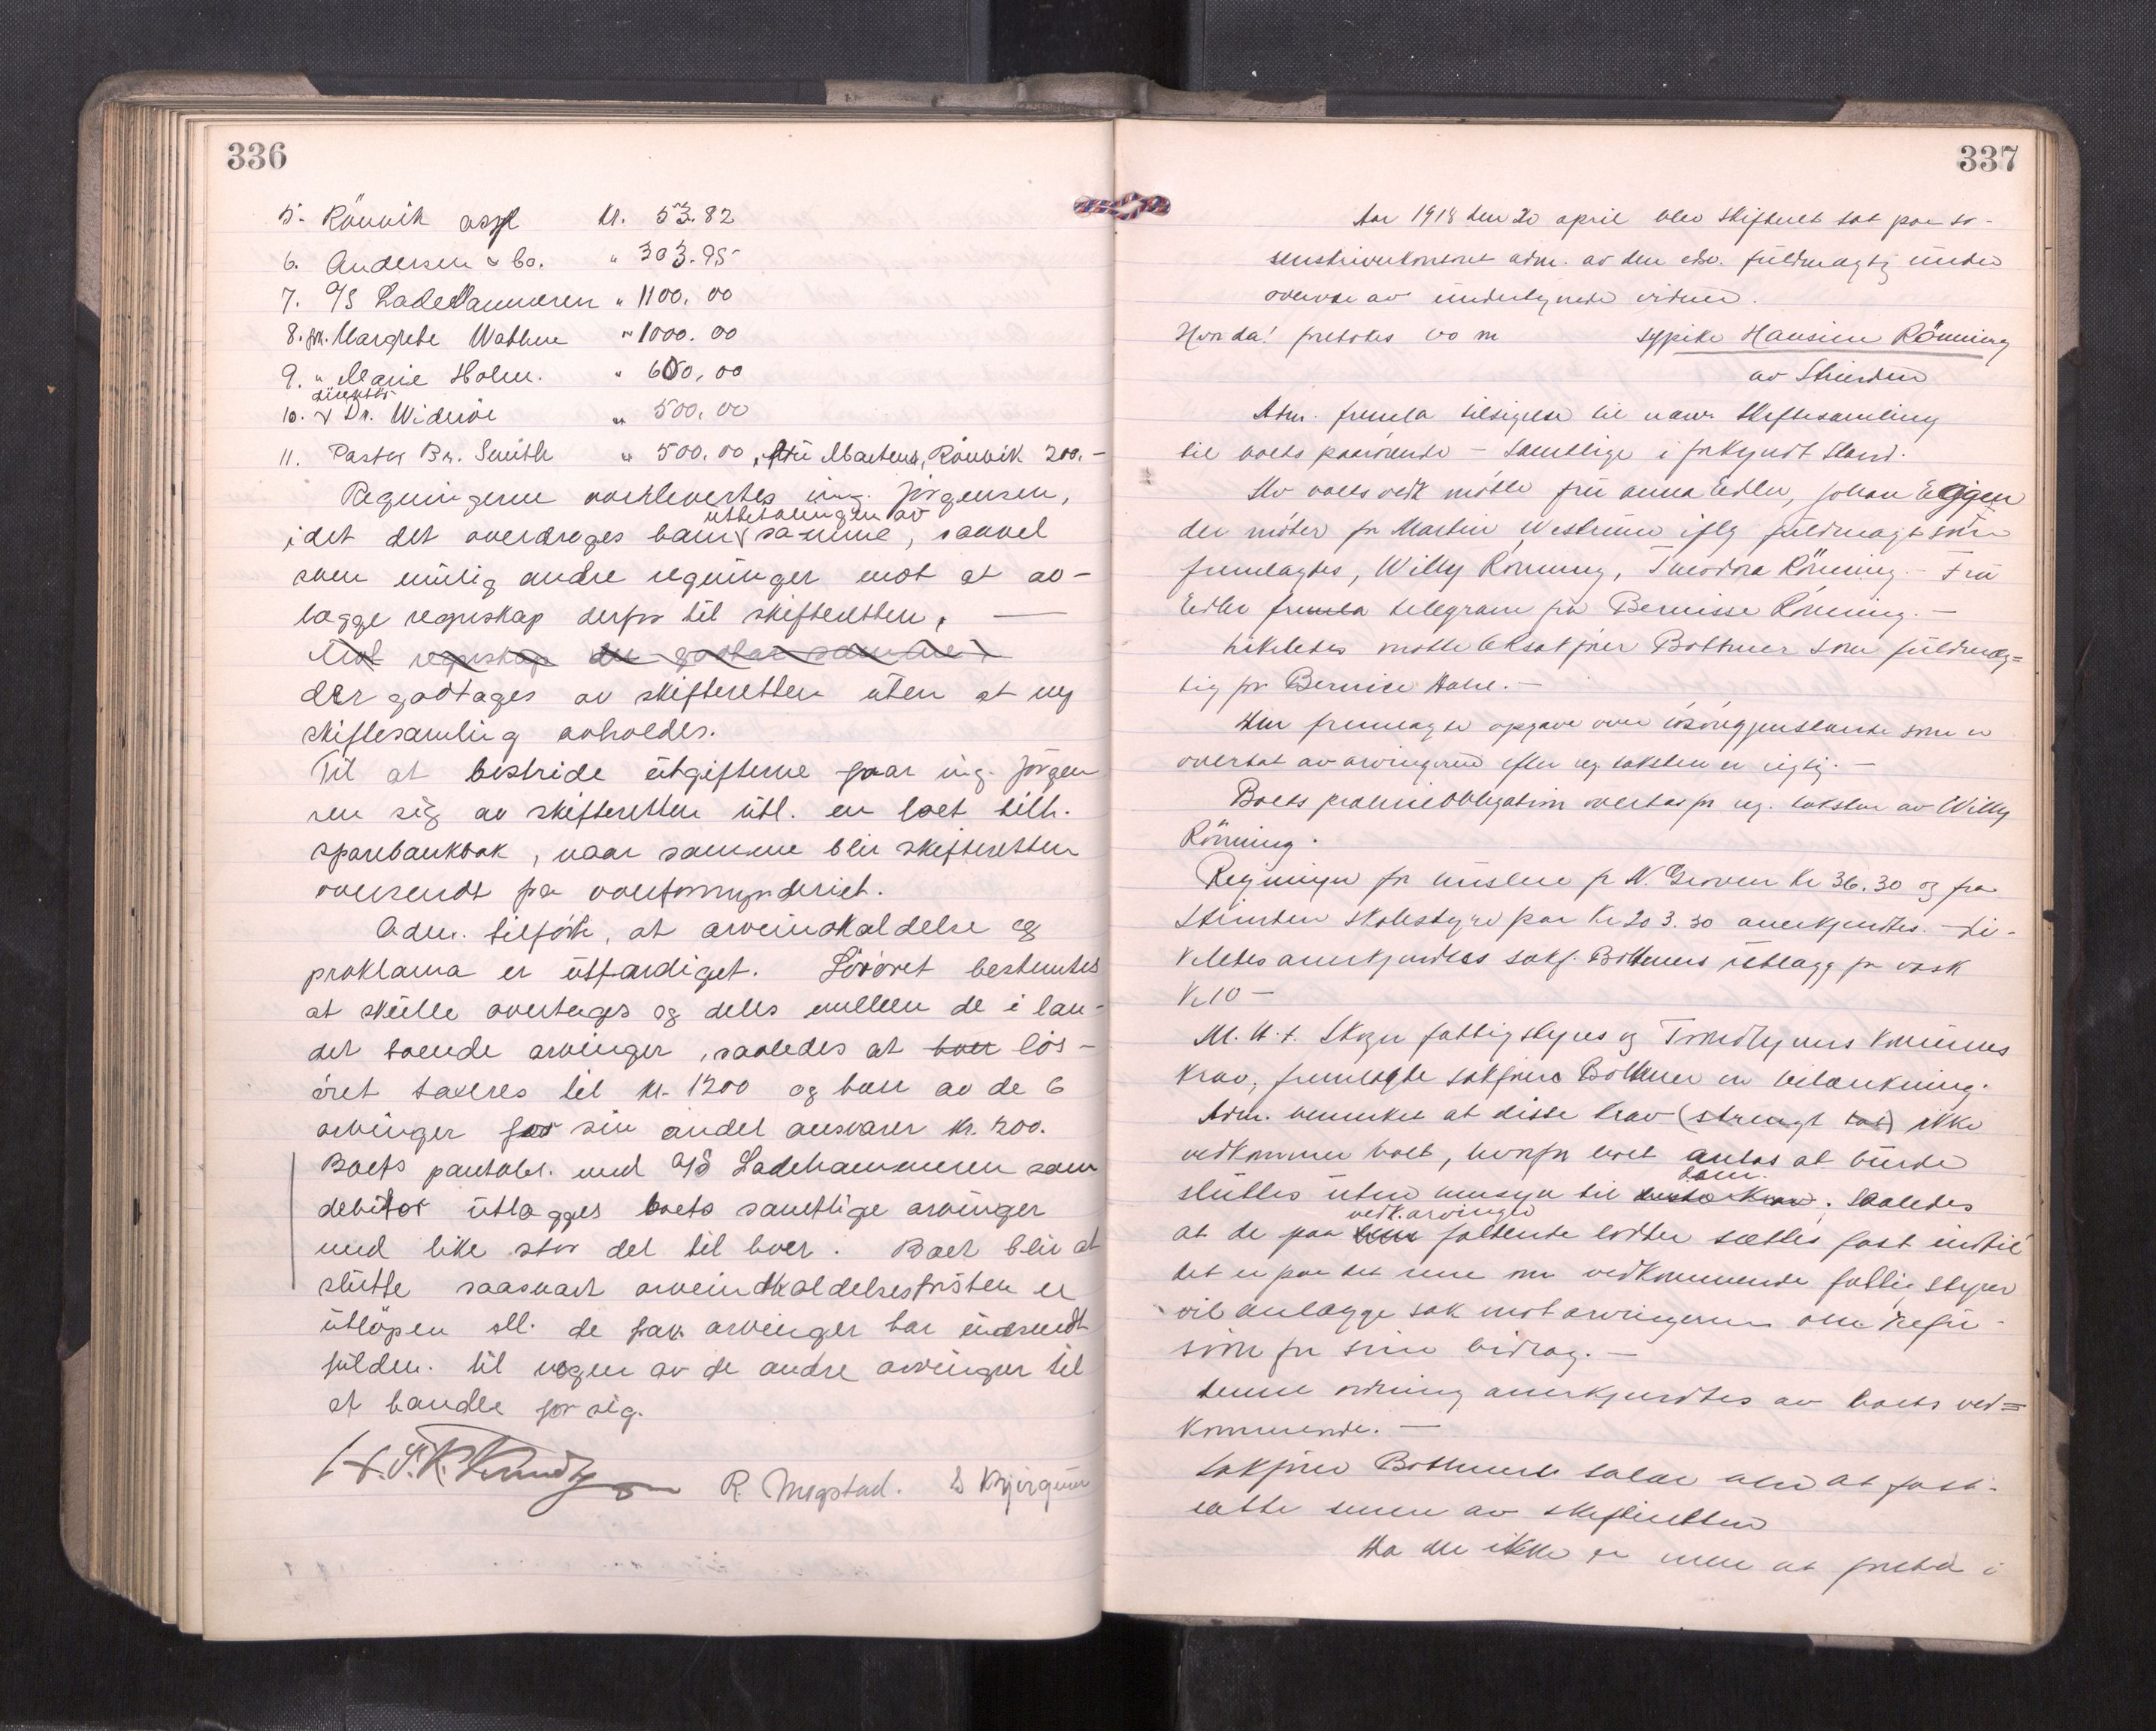 336
5. Rönvik asyl kr. 53.82
6. Andersen & Co. " 303.95
7. A/S Ladehammeren " 1100.00
8. frk. Margrete Wathne " 1000.00
9. " Marie Holm. " 600.00
direktör
10. Dr. Wideröe " 500.00
11. Pastor Br. Smith " 500.00, Rönvik 200.-
Regningerne overlevertes ing. Jörgensen,
utbetalingen av
idet det overdroges ham samme, saavel
som mulig andre regninger mot at av-
lægge regnskap derfor til skifteretten.
Mot regnskap der godtar samme
der godtages av skifteretten uten at ny
skiftesamling avholdes.
Til at bestride utgifterne faar ing. Jörgen
sen sig av skifteretten utl. en boet tilh.
sparebankbok, naar samme blir skifteretten
oversendt fra overformynderiet.
Adm. tilförte, at arveindkaldelse og
proklama er utfærdiget. Lösöret bestemtes
at skulle overtages og deles mellem de i lan-
det boende arvinger, saaledes at hver lös-
öret taxeres til kr. 1200 og hver av de 6
arvinger for sin andel ansvarer kr. 200.
Boets pantobl. med A/S Ladehammeren som
debitor utlægges boets samtlige arvinger
med like stor del til hver. Boet blir at
slutte saasnart arveindkaldelsesfristen er
utlöpen ell. de frav. arvinger har indsendt
fuldm. til nogen av de andre arvinger til
at handle for sig.
R. Mogstad.
337
Aar 1918 den 20 april blev skifteret sat paa so-
renskriverkontoret adm. av den edsv. fuldmægtig under
overvær av undertegnede vidner.
Hvor da! foretokes bo no sypike Hansine Rönning
av Strinden
Adm. fremla tilsigelse til nærv. skiftesamling
til boets paarörende - samtlige i forkyndt stand.
Av boets vedk. mötte fru Anna Eidler, Johan Eggen
der möter for Martin Westrum iflg fuldmagt som
fremlagdes, Willy Rönning, Theodora Rönning. - Fru
Eidler fremla telegram fra Bernisse Rönning. -
Likeledes mötte o.r.sakförer Bothner som fuldmæg-
tig for Bernice Hahl. -
Der fremlagdes opgave over lösöregjenstande som er
overtat av arvingerne efter reg. taksten er rigtig. -
Boets præmieobligation overtas for reg. taksten av Willy
Rönning.
Regninger for musikk fr N. Groven kr 36.30 og fra
Strinden skolestyre paa kr 203.30 anerkjendtes. - Li-
keledes anerkjendtes sakf. Bothners utlægg for vask
kr 10 -
M. H. t. Skogn fattigstyres og Trondhjems kommunes
krav, fremlagde sakförer Bothner en betænkning.
Adm. bemerket at disse krav (strengt tat) ikke
vedkommer boet, hvorfor boet antas at burde
dem.
sluttes uten hensyn til disse krav; saaledes
vedk. arvinger
at de paa dem faldende lodder sættes fast indtil
det er paa det rene om vedkommende fattigstyrer
vil anlægge sak mot arvingerne om refu-
sion for sine bidrag. -
Denne ordning anerkjendtes av boets ved-
kommende. -
Sakförer Bothners salær blir at fast-
sætte senere av skifteretten
Da der ikke er mere at foreta i